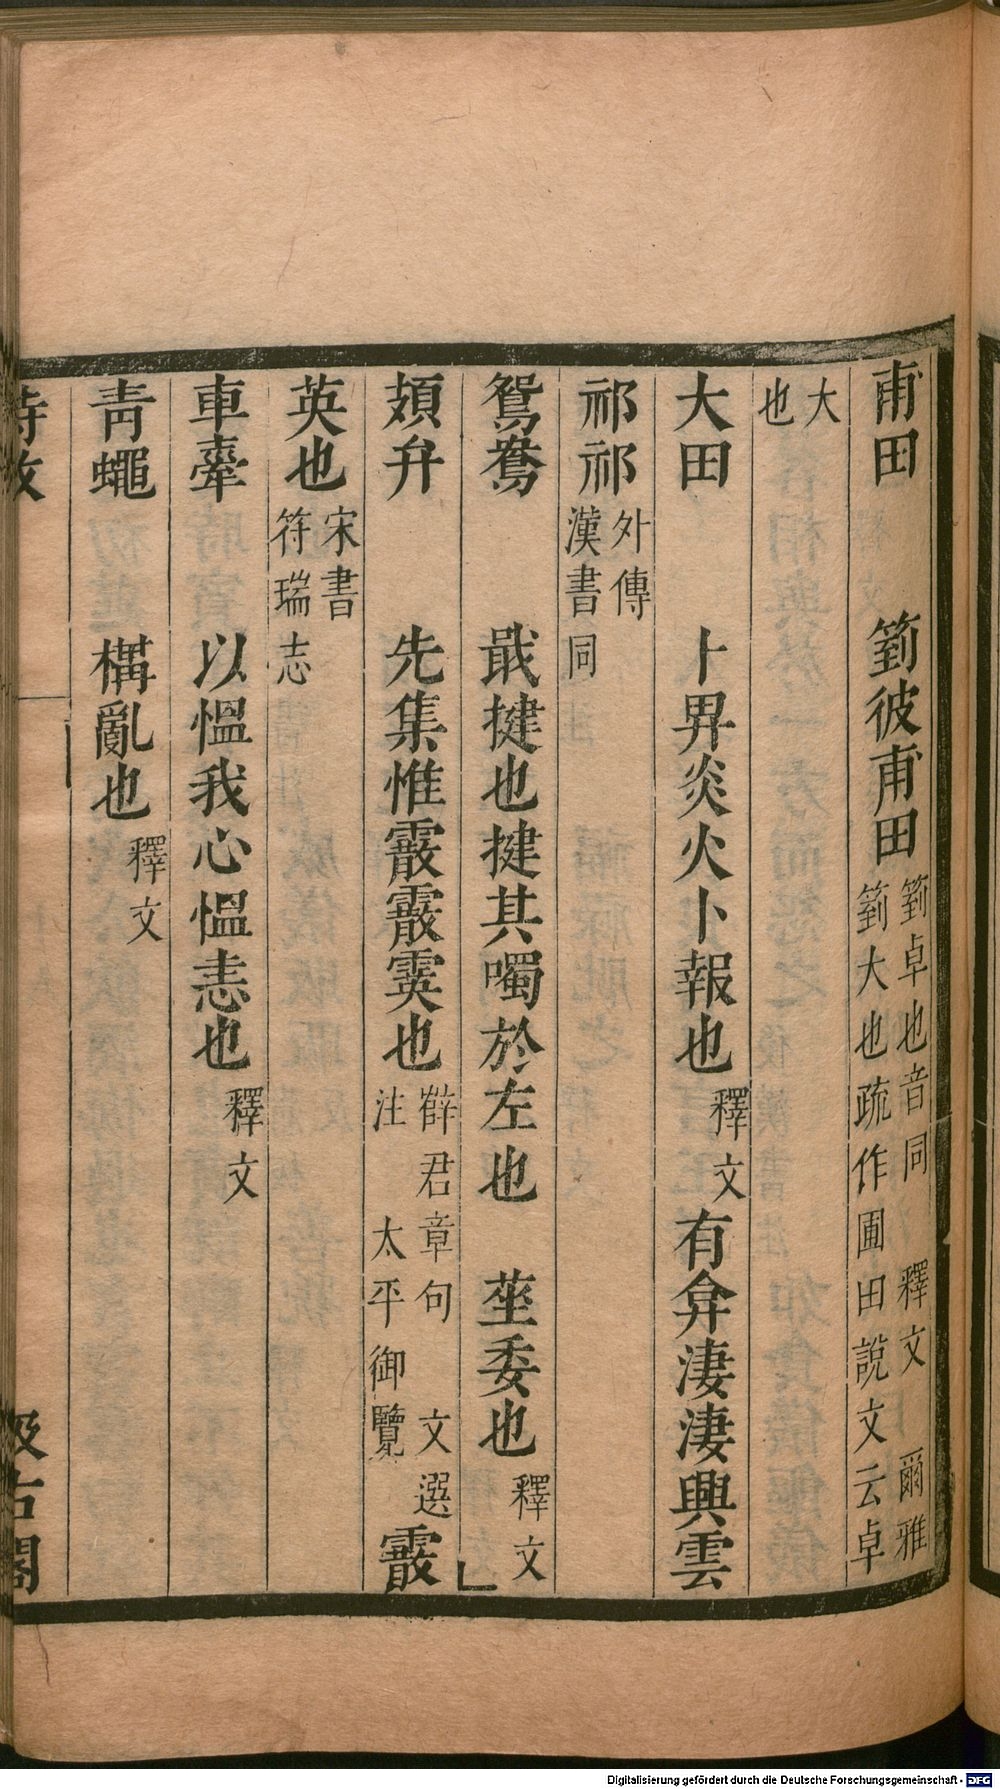 甫田　箌彼甫田箌卓也音同　釋文　爾雅箌大也疏作圃田說文云卓
大也
大田　卜畀炎火卜報也釋文有弇淒淒興雲
祁祁外傳漢書同
鴛鴦　戢揵也揵其噣於左也　莝委也釋文
頍弁　先集惟霰霰霙也薛君章句　文選注　太平御覽霰
英也宋書符瑞志
車舝　以慍我心慍恚也釋文
靑蠅　構亂也釋文
詩攷　汲古閣
Digitalisierung gefördert durch die Deutsche Forschungsgemeinschaft - DFG